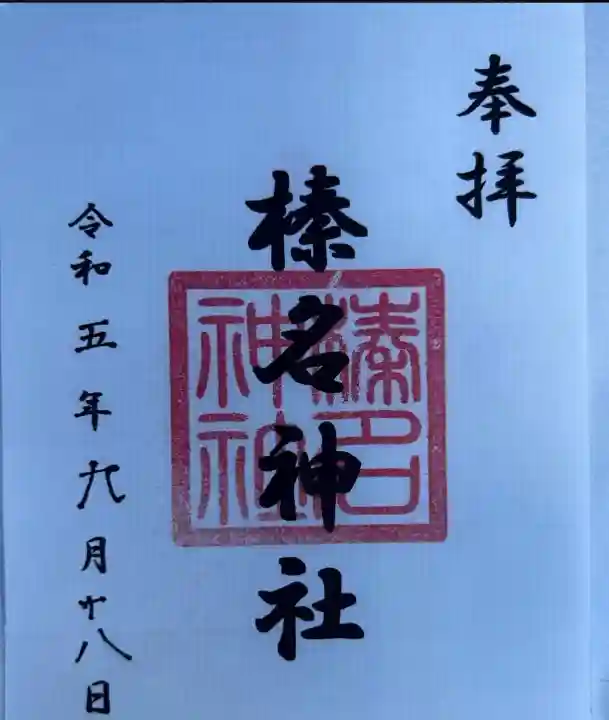 奉拝
榛名神社
榛名
神社
令和五年九月十八日